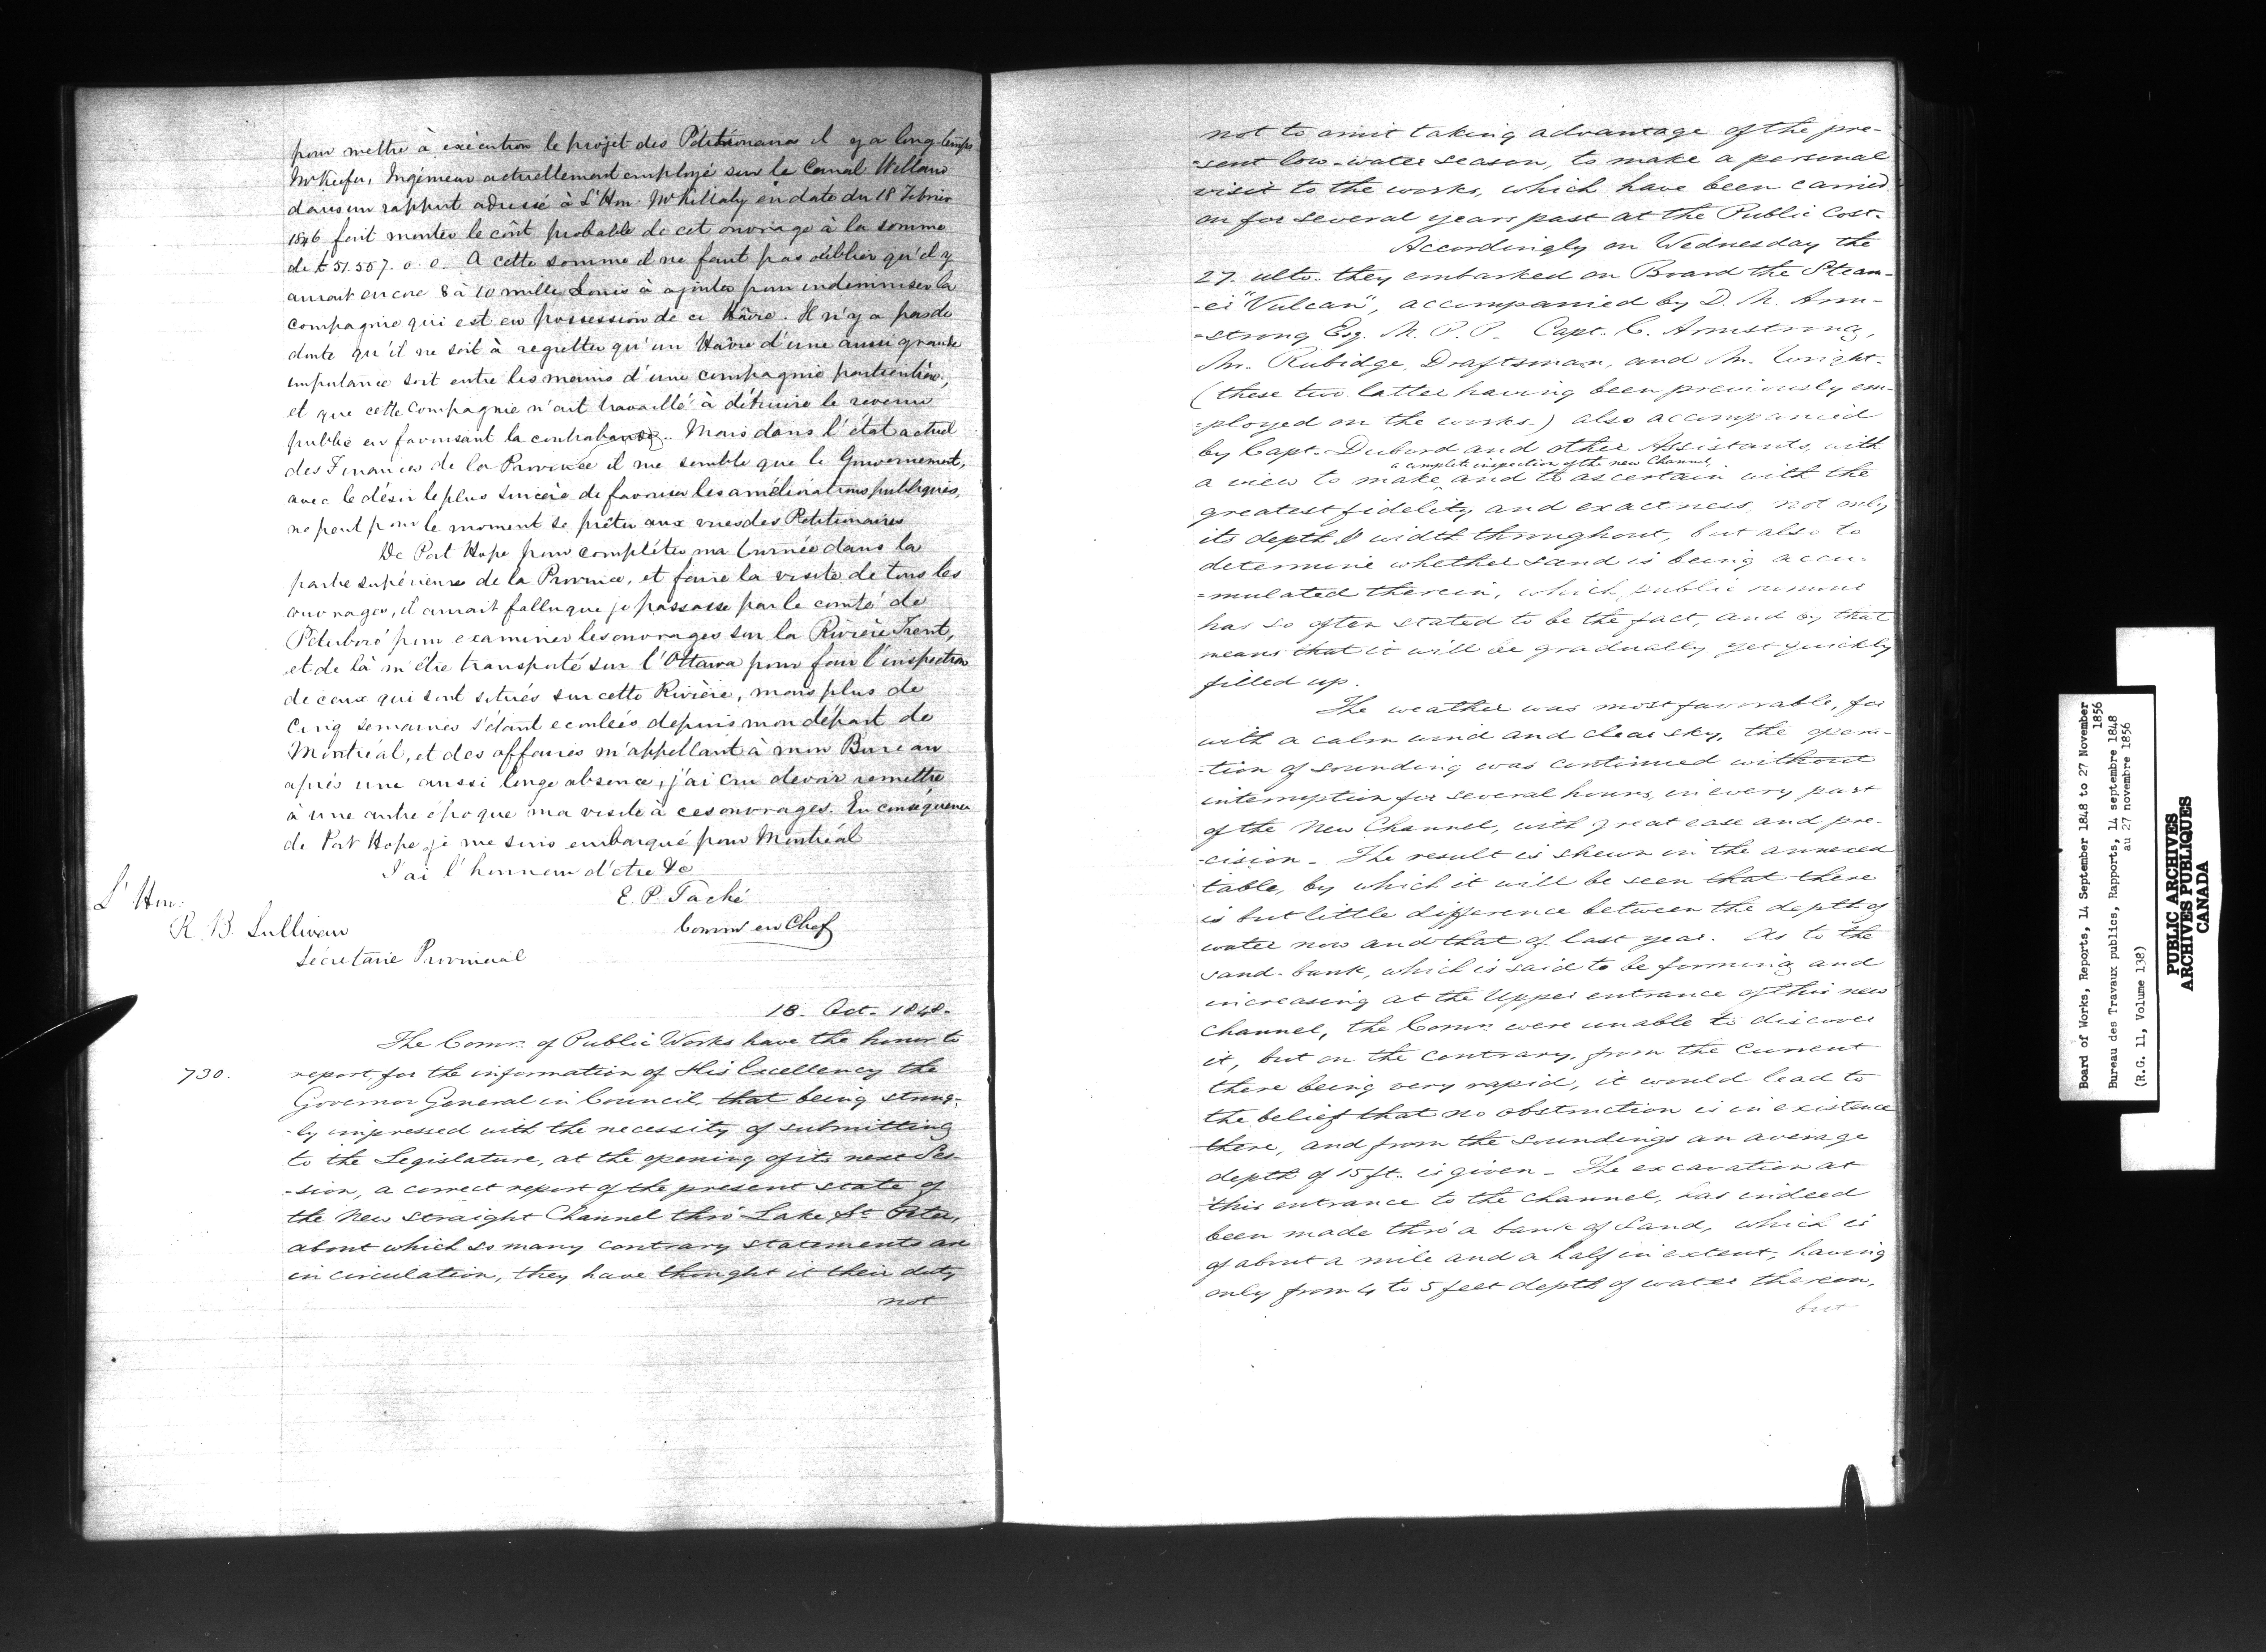 pour mettre à exécution le projet des Pétitionaires il y a long-temps
Mr Keefer, Ingénieur actuellement employé sur le Canal Welland
dans un rapport adressé à L'Hon. Mr Killaly en date du 18 Février
1846 fait monter le coût probable de cet ouvrage à la somme
de £51.557. 0. 0. A cette somme il ne faut pas oublier qu'il y
aurait encore 8 à 10 mille Louis à ajouter pour indemniser la
compagnie qui est en possession de ce Hâvre. Il n'y a pas de
doute qu'il ne soit à regretter qu'un Hâvre d'une aussi grande
importance soit entre les mains d'une compagnie particulière,
et que cette Compagnie n'ait travaillé à détruire le revenu
public en favorisant la contrabande. Mais dans l'état actuel
des Finances de la Province il me semble que le Gouvernement,
avec le désir le plus sincère de favoriser les améliorations publiques,
ne peut pour le moment se prêter aux vues des Petitionaires
De Port Hope pour compléter ma tournée dans la
partie supérieure de la Province, et faire la visite de tous les
ouvrages, il aurait fallu que je passasse par le comté de
Péterboro' pour examiner les ouvrages sur la Rivière Trent,
et de là m'être transporté sur l'Ottawa pour faire l'inspection
de ceux qui sont situés sur cette Rivière, mais plus de
Cinq semaines s'étant ecoulées depuis mon départ de
Montréal, et des affaires m'appellant à mon Bureau
après une aussi longe absence, j'ai cru devoir remettre
à une autre époque ma visite à ces ouvrages. En conséquence
de Port Hope je me suis embarqué pour Montréal
J'ai l'honneur d'etre &c
E. P. Taché
Commr en Chef
L' Hon.
R. B. Sullivan
Sécrétaire Provincial
18. Oct. 1848.
730.
The Comrs. of Public Works have the honor to
report, for the information of His Excellency the
Governor General in Council, that being strong-
-ly impressed with the necessity of submitting
to the Legislature, at the opening of its next Ses-
-sion, a correct report of the present state of
the New straight Channel thro' Lake St Peter,
about which so many contrary statements are
in circulation, they have thought it their duty
not
not to omit taking advantage of the pre-
-sent low-water season, to make a personal
visit to the works, which have been carried
on for several years past at the Public Cost.
Accordingly on Wednesday the
27. ulto. they embarked on Board the Steam-
-er "Vulcan", accompanied by D. M. Arm-
-strong Esq. M. P. P. Capt. C. Armstrong,
Mr. Rubidge, Draftsman, and Mr. Wright.
(these two latter having been previously em-
-ployed on the works.) also accompanied
by Capt. Dubord and other Assistants, with
a complete inspection of the new Channel,
a view to make and to ascertain with the
greatest fidelity and exactness, not only
its depth & width throughout, but also to
determine whether sand is being accu-
-mulated therein, which public rumour
has so often stated to be the fact, and by that
means that it will be gradually yet quickly
filled up.
The weather was most favorable, for
with a calm wind and clear sky, the opera-
-tion of sounding was continued without
interruption for several hours, in every part
of the New Channel, with great ease and pre-
-cision - The result is shewn in the annexed
table, by which it will be seen that there
is but little difference between the depth of
water now and that of last year. As to the
sand-bank, which is said to be forming and
increasing at the Upper entrance of this new
Channel, the Comrs. were unable to discover
it, but on the contrary, from the current
there being very rapid, it would lead to
the belief that no obstruction is in existence
there, and from the soundings an average
depth of 15 ft. is given - The excavation at
this entrance to the channel, has indeed
been made thro' a bank of Sand, which is
of about a mile and a half in extent, having
only from 4 to 5 feet depth of water thereon,
but
Board of Works, Reports, 14 September 1848 to 27 November
1856
Bureau des Travaux publics, Rapports, 14 septembre 1848
au 27 novembre 1856
(R.G. 11, Volume 138)
PUBLIC ARCHIVES
ARCHIVES PUBLIQUES
CANADA